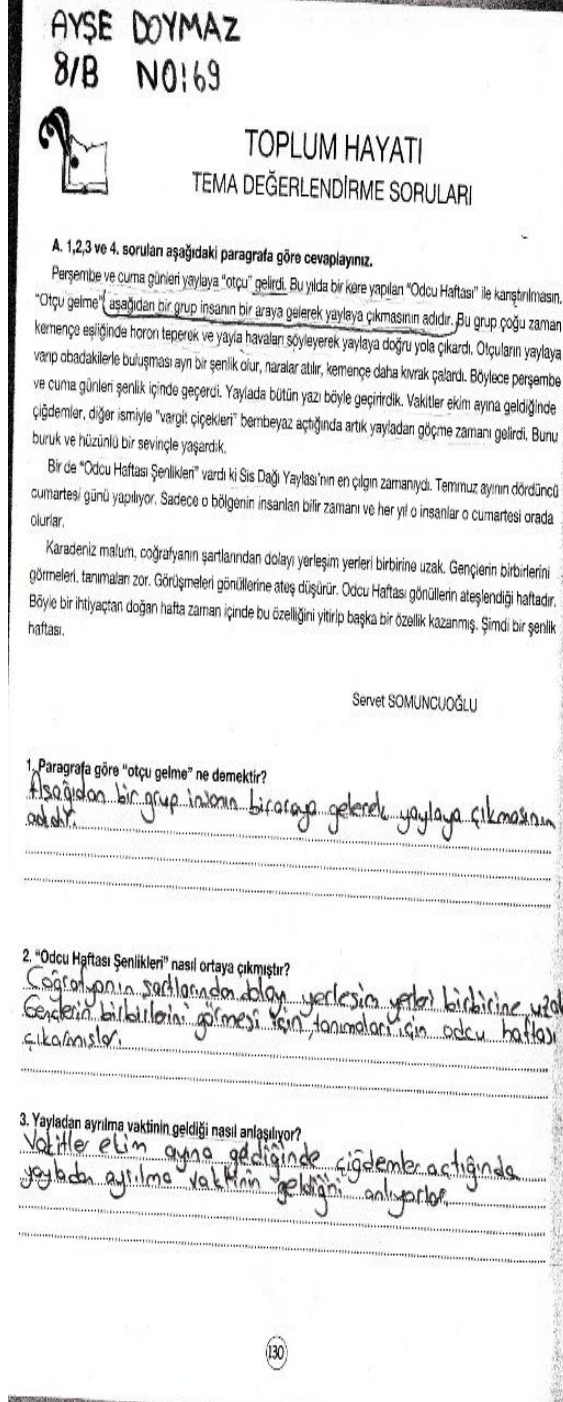 AYŞE DOYMAZ
8/B NO:69
TOPLUM HAYATI
TEMA DEĞERLENDİRME SORULARI
A. 1,2,3 ve 4. soruları aşağıdaki paragrafa göre cevaplayınız.
Perşembe ve cuma günleri yaylaya "otçu" gelirdi. Bu yılda bir kere yapılan "Odcu Haftası" ile karıştırılmasın.
"Otçu gelme" aşağıdan bir grup insanın bir araya gelerek yaylaya çıkmasının adıdır. Bu grup çoğu zaman
kemençe eşliğinde horon teperek ve yayla havaları söyleyerek yaylaya doğru yola çıkardı. Otçuların yaylaya
varıp obadakilerle buluşması ayrı bir şenlik olur, naralar atılır, kemençe daha kıvrak çalardı. Böylece perşembe
ve cuma günleri şenlik içinde geçerdi. Yaylada bütün yazı böyle geçirirdik. Vakitler ekim ayına geldiğinde
çiğdemler, diğer ismiyle "vargit çiçekleri" bembeyaz açtığında artık yayladan göçme zamanı gelirdi. Bunu
buruk ve hüzünlü bir sevinçle yaşardık.
Bir de "Odcu Haftası Şenlikleri" vardı ki Sis Dağı Yaylası'nın en çılgın zamanıydı. Temmuz ayının dördüncü
cumartesi günü yapılıyor. Sadece o bölgenin insanları bilir zamanı ve her yıl o insanlar o cumartesi orada
olurlar.
Karadeniz malum, coğrafyanın şartlarından dolayı yerleşim yerleri birbirine uzak. Gençlerin birbirlerini
görmeleri, tanımaları zor. Görüşmeleri gönüllerine ateş düşürür. Odcu Haftası gönüllerin ateşlendiği haftadır.
Böyle bir ihtiyaçtan doğan hafta zaman içinde bu özelliğini yitirip başka bir özellik kazanmış. Şimdi bir şenlik
haftası.
Servet SOMUNCUOĞLU
1. Paragrafa göre "otçu gelme" ne demektir?
Aşağıdan bir grup insanın biraraya gelerek yaylaya çıkmasının
adıdır.
2. "Odcu Haftası Şenlikleri" nasıl ortaya çıkmıştır?
Coğrafyanın şartlarından dolayı yerleşim yerleri birbirine uzak
Gençlerin birbirlerini görmesi için, tanımaları için odcu haftası
çıkarmışlar.
3. Yayladan ayrılma vaktinin geldiği nasıl anlaşılıyor?
Vakitler ekim ayına geldiğinde çiğdemler açtığında
yayladan ayrılma vaktinin geldiğini anlıyorlar.
130